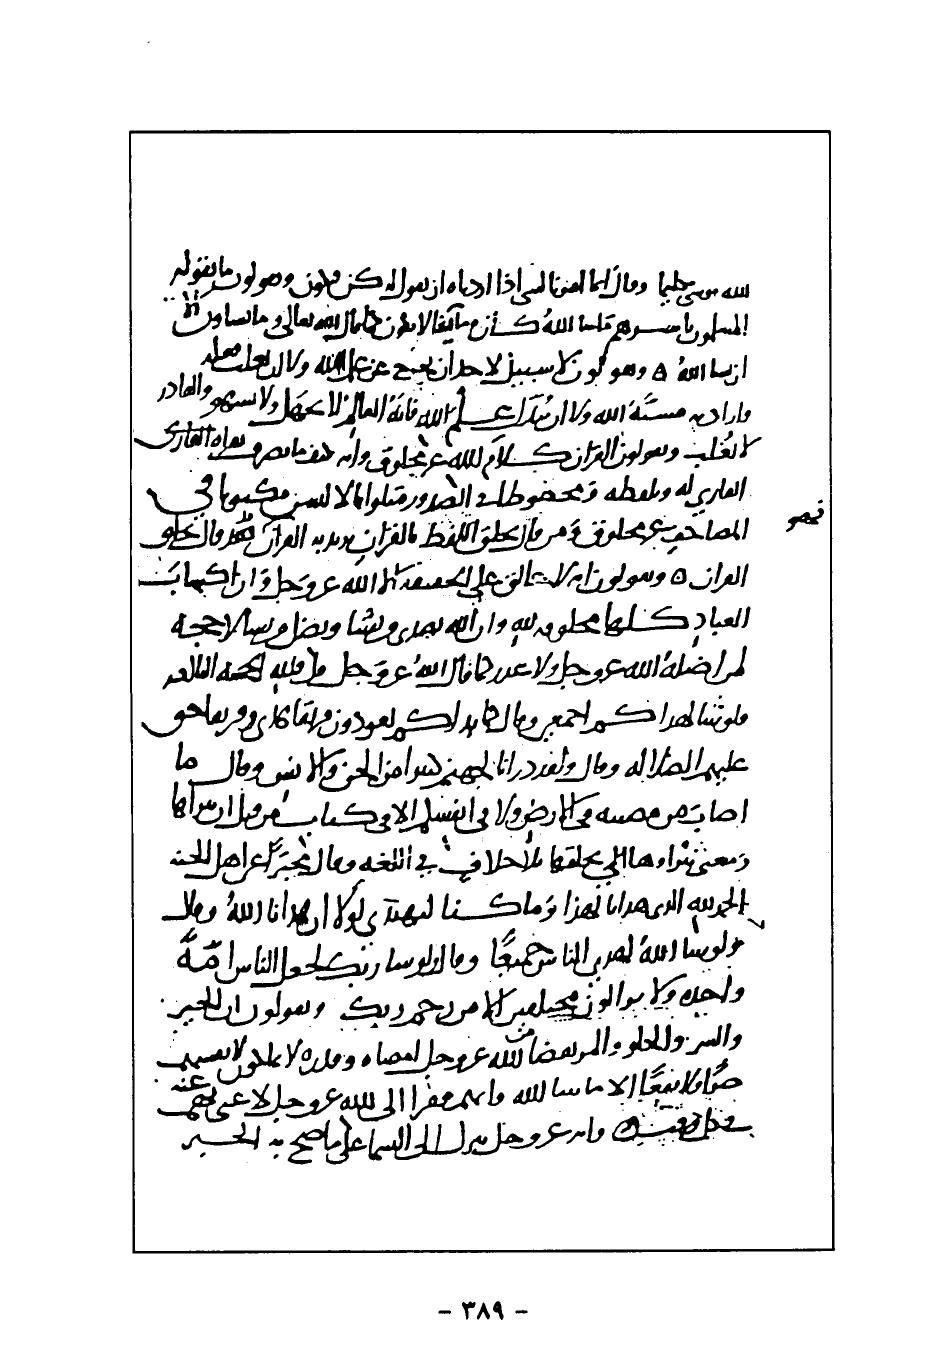 الله موسى تكليما وقال انما امرنا لشي اذا اردناه ان نقول له كن فيكون ويقولون ما يقوله
المسلمون باسرهم ما شا الله كان وما لا يشا لا يكون كما قال الله تعالى وما تشاون الا
ان يشا الله ٥ ويقولون لا سبيل لاحد ان يخرج عن علم الله ولا ان يغلب فعله
وارادته مشيّة الله ولا ان يبدّل علم الله فانه العالم لا يجهل ولا يسهو والقادر
لا يُغلب ويقولون القران كلام الله غير مخلوق وانه كيفما تصرف بقراه القاري
القاري له وبلفظه ومحفوظا في الصدور متلوا بالالسن مكتوبا في
المصاحف غير مخلوق ومن قال بخلق اللفظ بالقران يريد به القران فقد قال بخلق
القران ٥ ويقولون انه لا خالق على الحقيقه الا الله عز وجل وان اكساب
العباد كلها مخلوقه لله وان الله يهدي من يشا ويضل من يشا لا حجه
لمن اضله الله عز وجل ولا عذر كما قال الله عز وجل قل فلله الحجه البالغه
فلو شا لهداكم اجمعين وقال كما بداكم تعودون فريقا هدى وفريقا حق
عليهم الضلاله وقال ولقد ذرانا لجهنم كثيرا من الجن والانس وقال ما
اصاب من مصيبه في الارض ولا في انفسكم الا في كتاب من قبل ان نبراها
ومعنى نبراها اي نخلقها بلا خلاف في اللغه وقال مخبرا عن اهل الجنه
الحمد لله الذي هدانا لهذا وما كنا لنهتدي لولا ان هدانا الله وقال
ولو يشا الله لهدى الناس جميعا وقال ولو شا ربك لجعل الناس امة
واحده ولا يزالون مختلفين الا من رحم ربك ويقولون ان الخير
والشر والحلو والمر بقضا من الله عز وجل امضاه وقدره لا يملكون لانفسهم
ضرا ولا نفعا الا ما شا الله وانهم فقرا الى الله عز وجل لا غنى لهم عنه
في كل وقت ٥ وانه عز وجل ينزل الى السما على ما صح به الخبر
- ٣٨٩ -